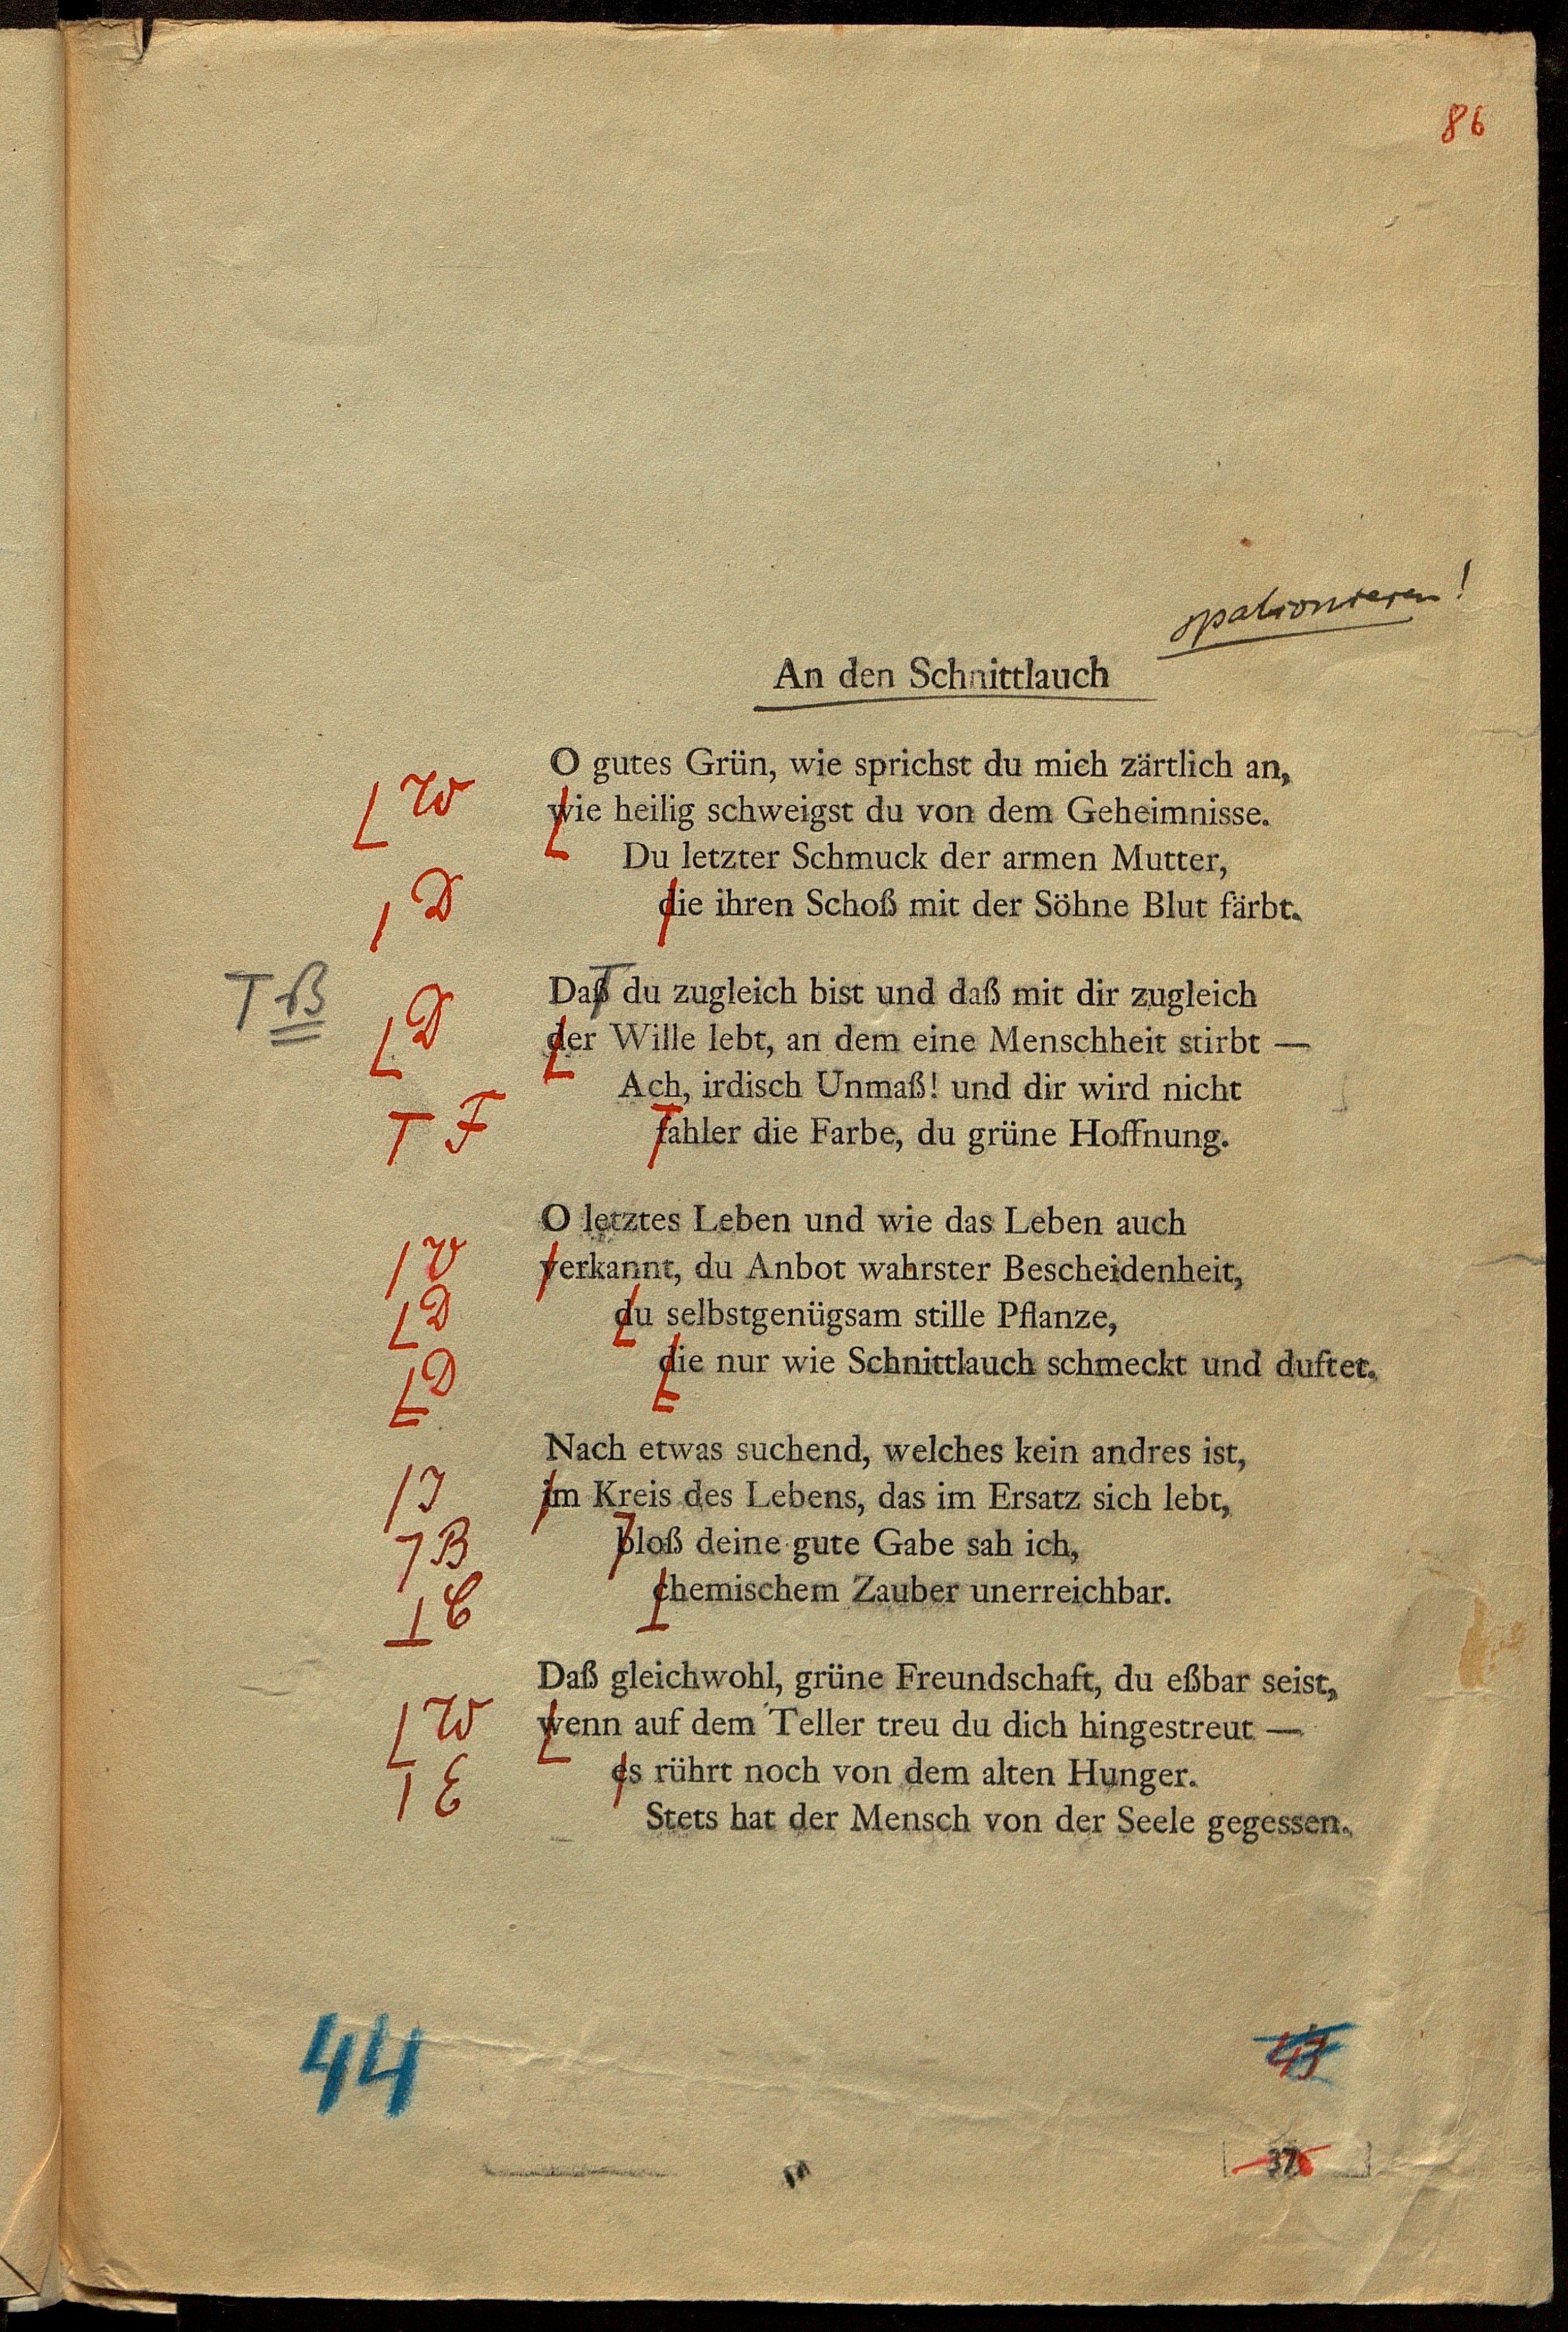 86
spationieren!
An den Schnittlauch
O gutes Grün, wie sprichst du mich zärtlich an,
⌊ W wie heilig schweigst du von dem Geheimnisse.
Du letzter Schmuck der armen Mutter,
| D die ihren Schoß mit der Söhne Blut färbt.
T ß Daß du zugleich bist und daß mit dir zugleich
⌊ D der Wille lebt, an dem eine Menschheit stirbt —
Ach, irdisch Unmaß! und dir wird nicht
T F fahler die Farbe, du grüne Hoffnung.
O letztes Leben und wie das Leben auch
| V verkannt, du Anbot wahrster Bescheidenheit,
⌊ D du selbstgenügsam stille Pflanze,
⌊ D die nur wie Schnittlauch schmeckt und duftet.
Nach etwas suchend, welches kein andres ist,
| I im Kreis des Lebens, das im Ersatz sich lebt,
⌉ B bloß deine gute Gabe sah ich,
⊥ C chemischem Zauber unerreichbar.
Daß gleichwohl, grüne Freundschaft, du eßbar seist,
⌊ W wenn auf dem Teller treu du dich hingestreut —
| E es rührt noch von dem alten Hunger.
Stets hat der Mensch von der Seele gegessen.
44